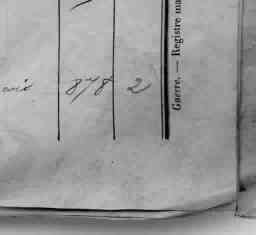 878 2
Guerre. — Registre ma